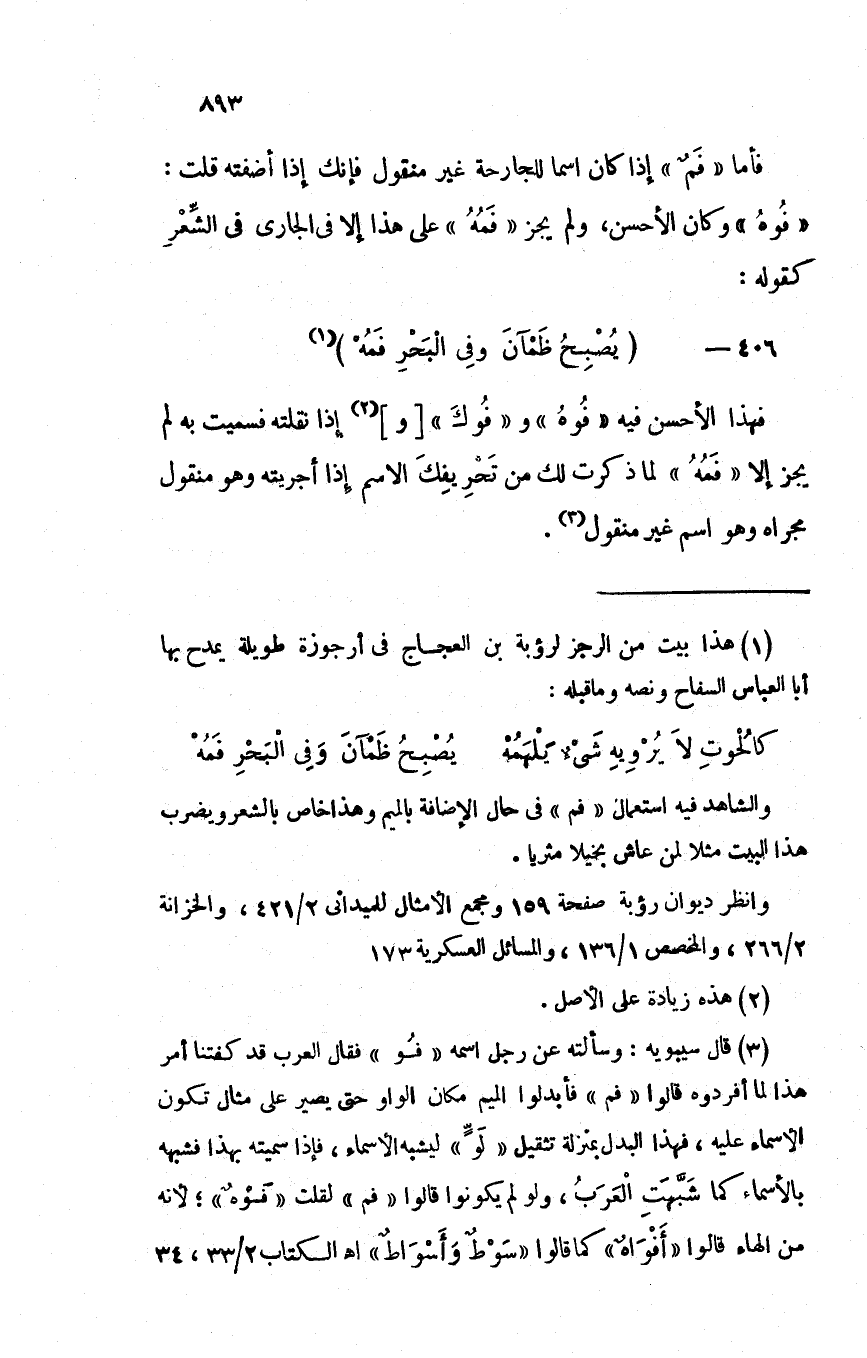 ٨٩٣
فأما « فَمٌ » إذا كان اسما للجارحة غير منقول فإنك إذا أضفته قلت :
« فُوهُ » وكان الأحسن، ولم يجز « فَمُهُ » على هذا إلا فى الجارى فى الشِّعْرِ
كقوله :
٤٠٦ — ( يُصْبِحُ ظَمْآنَ وفِي الْبَحْرِ فَمُهْ )(١)
فهذا الأحسن فيه « فُوهُ » و « فُوكَ » [ و ](٢) إذا نقلته فسميت به لم
يجز إلا « فَمُهُ » لما ذكرت لك من تَحْرِيفِكَ الاسم إذا أجريته وهو منقول
مجراه وهو اسم غير منقول(٣) .
(١) هذا بيت من الرجز لرؤبة بن العجاج فى أرجوزة طويلة يمدح بها
أبا العباس السفاح ونصه وماقبله :
كالْحُوتِ لاَ يُرْوِيهِ شَىْءٌ يَلْهَمُهْ يُصْبِحُ ظَمْآنَ وَفِي الْبَحْرِ فَمُهْ
والشاهد فيه استعمال « فم » فى حال الإضافة بالميم وهذا خاص بالشعر ويضرب
هذا البيت مثلا لمن عاش بخيلا مثريا .
وانظر ديوان رؤبة صفحة ١٥٩ ومجمع الأمثال للميدانى ٤٢١/٢ ، والخزانة
٢٦٦/٢ ، والمخصص ١٣٦/١ ، والمسائل العسكرية ١٧٣
(٢) هذه زيادة على الأصل .
(٣) قال سيبويه : وسألته عن رجل اسمه « فُو » فقال العرب قد كفتنا أمر
هذا لما أفردوه قالوا « فم » فأبدلوا الميم مكان الواو حتى يصير على مثال تكون
الأسماء عليه ، فهذا البدل بمنزلة تثقيل « لَوٍّ » ليشبه الأسماء ، فإذا سميته بهذا فشبهه
بالأسماء كما شَبَّهَتِ الْعَرَبُ ، ولو لم يكونوا قالوا « فم » لقلت « فَوْهٌ » ؛ لأنه
من الهاء قالوا « أَفْوَاهٌ » كما قالوا « سَوْطٌ وَأَسْوَاطٌ » اه الكتاب ٣٣/٢ ، ٣٤